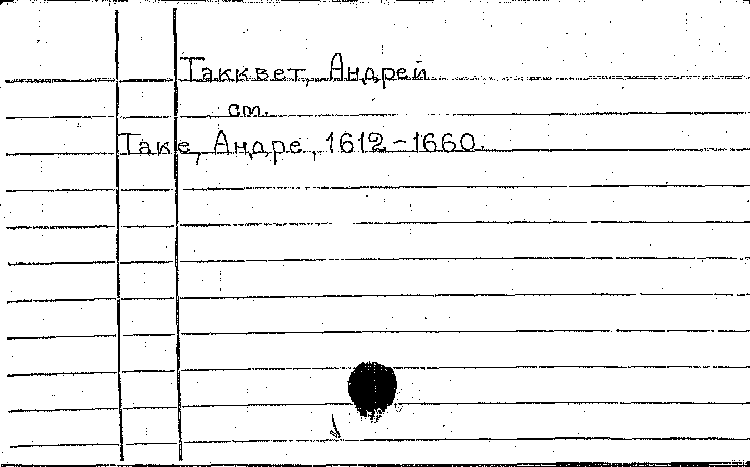 Такквет, Андрей
см.
Таке, Андре, 1612-1660.